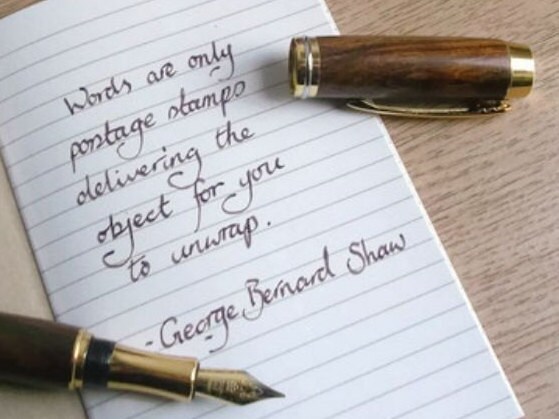 Words are only
postage stamps
delivering the
object for you
to unwrap.
- George Bernard Shaw